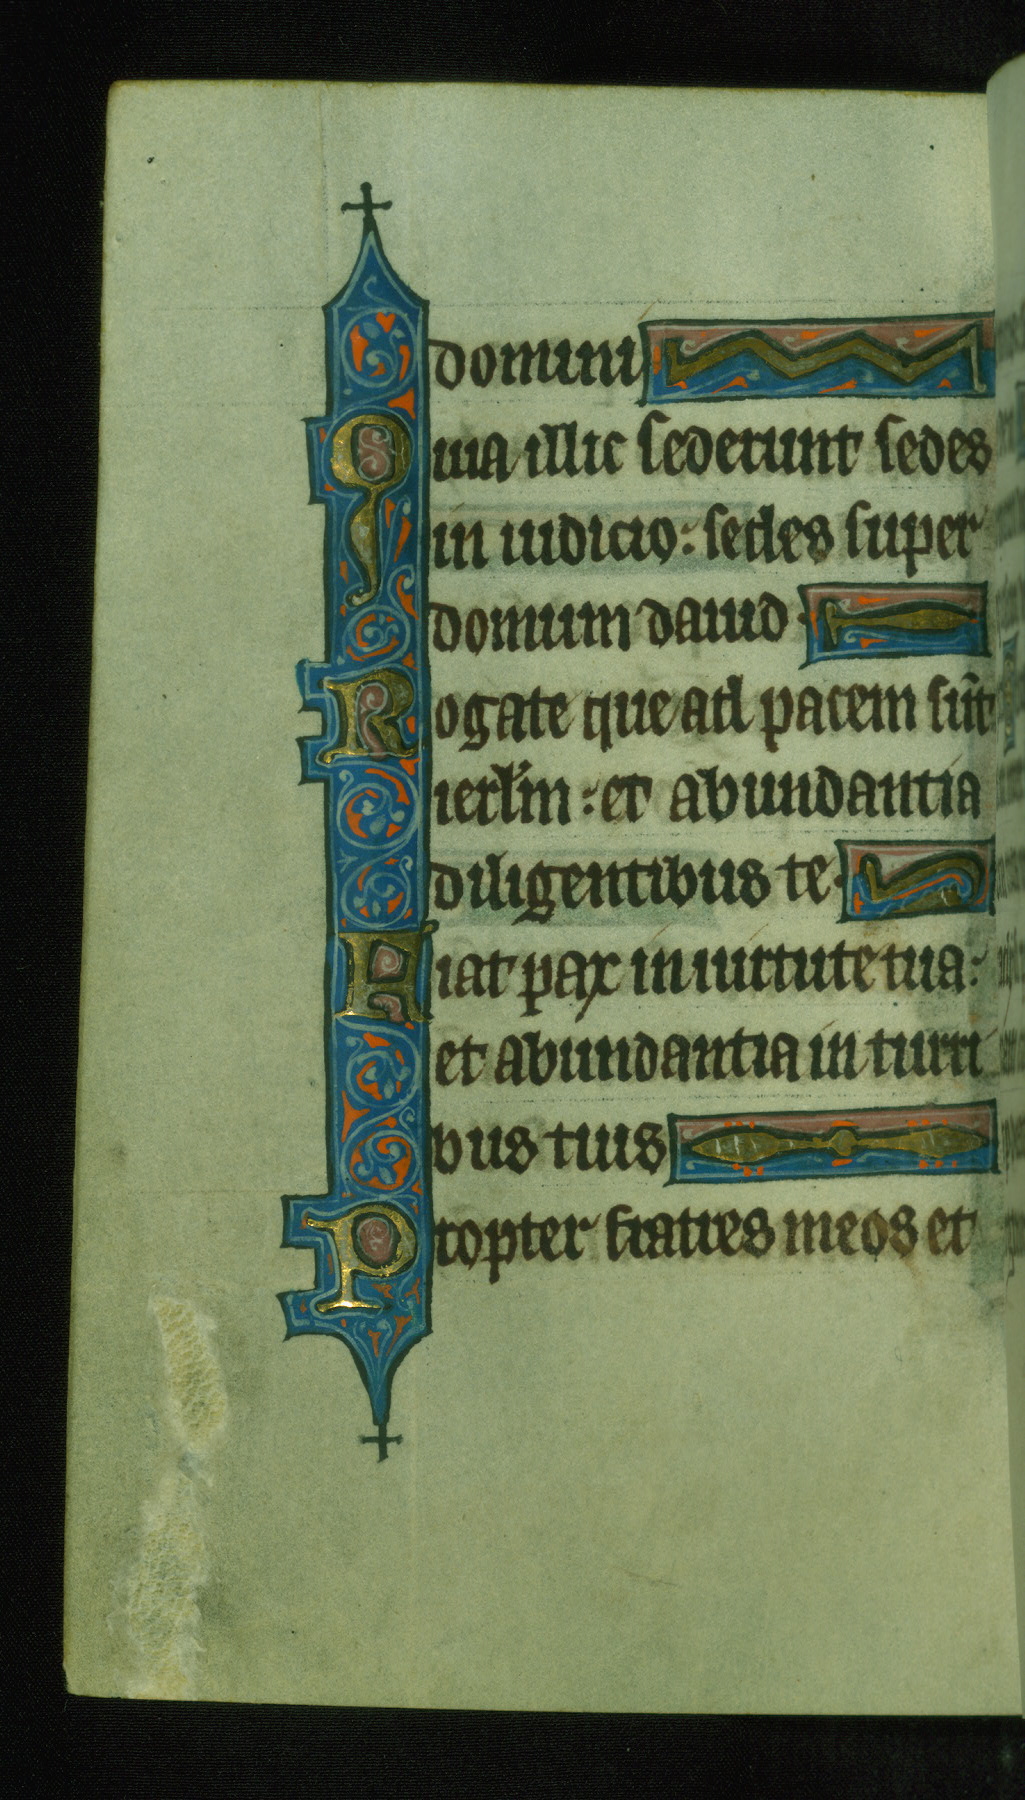 domini
Quia illic sederunt sedes
in iudicio: sedes super
domum dauid
Rogate que ad pacem sūt
ierłm: et abundantia
diligentibus te
Fiat pax in uirtute tua:
et abundantia in turri
bus tuis
Propter fratres meos et